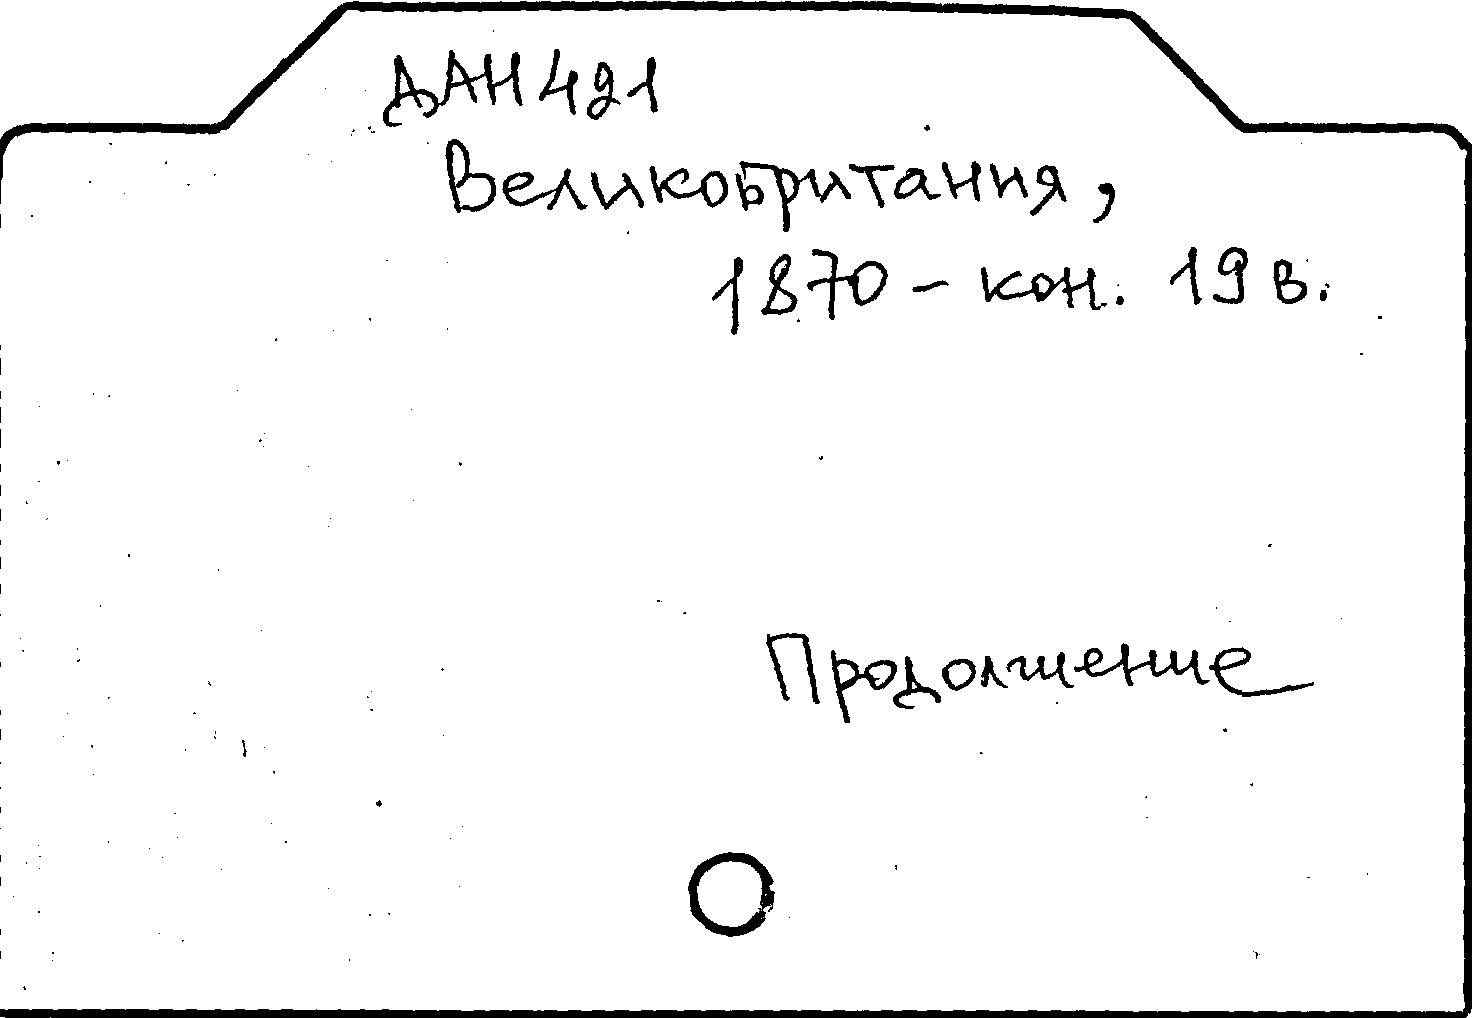 ДАН421
Великобритания,
1870 - кон. 19 в.
Продолжение